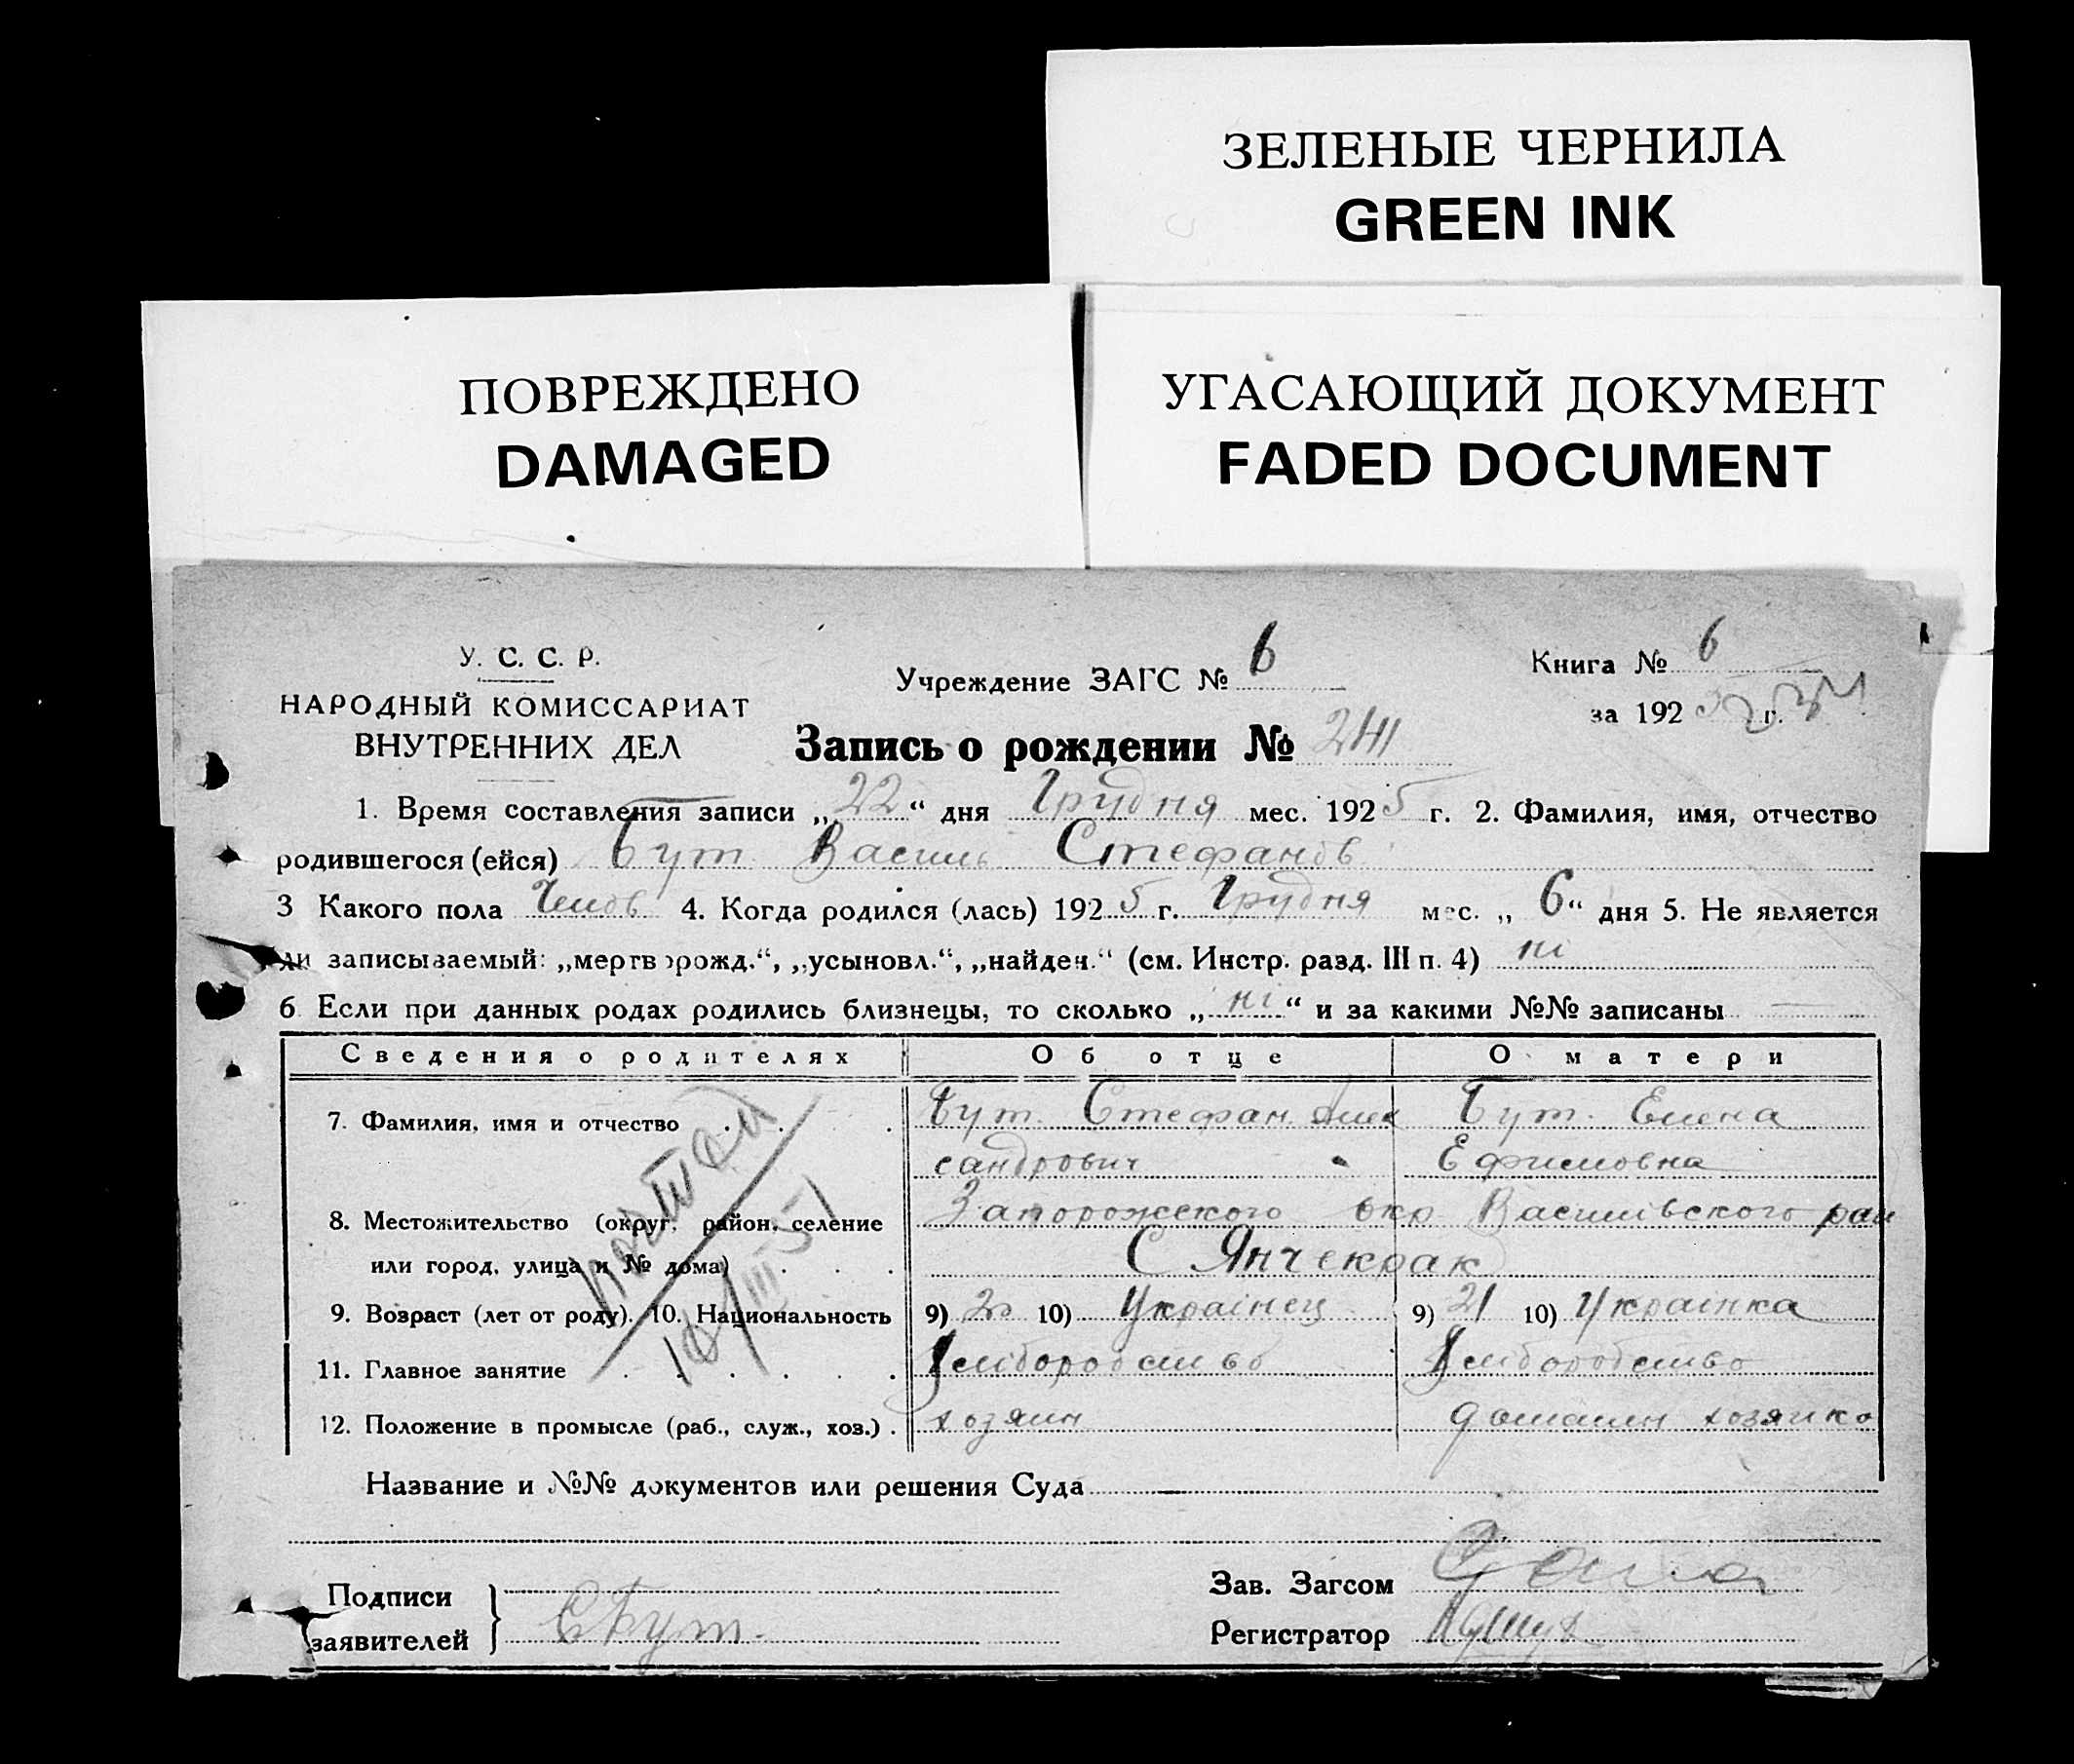 ЗЕЛЕНЫЕ ЧЕРНИЛА
GREEN INK
ПОВРЕЖДЕНО
DAMAGED
УГАСАЮЩИЙ ДОКУМЕНТ
FADED DOCUMENT
У. С. С. Р.
НАРОДНЫЙ КОМИССАРИАТ
ВНУТРЕННИХ ДЕЛ
Учреждение ЗАГС № 6
Книга № 6
за 192 5 г.
Запись о рождении № 241
1. Время составления записи „22“ дня Грудня мес. 1925 г. 2. Фамилия, имя, отчество
родившегося (ейся) Бут Василь Стефанов
3 Какого пола Челов 4. Когда родился (лась) 1925 г. Грудня мес. „6“ дня 5. Не является
ли записываемый: „мертворожд.“, „усыновл.“, „найден.“ (см. Инстр. разд. III п. 4) ні
6 Если при данных родах родились близнецы, то сколько „ні“ и за какими №№ записаны —
Сведения о родителях Об отце О матери
7. Фамилия, имя и отчество Бут Стефан Алек Бут Елена
сандрович Ефимовна
8. Местожительство (округ, район, селение Запорожского окр Василівского рай
или город, улица и № дома) С Янчекрак
9. Возраст (лет от роду). 10. Национальность 9) 20 10) Українец 9) 21 10) Українка
11. Главное занятие Хлібороб Хлібороб
12. Положение в промысле (раб., служ., хоз.) хозяин домашн хозяйка
Название и №№ документов или решения Суда —
Подписи
заявителей
СБут
Зав. Загсом
Регистратор